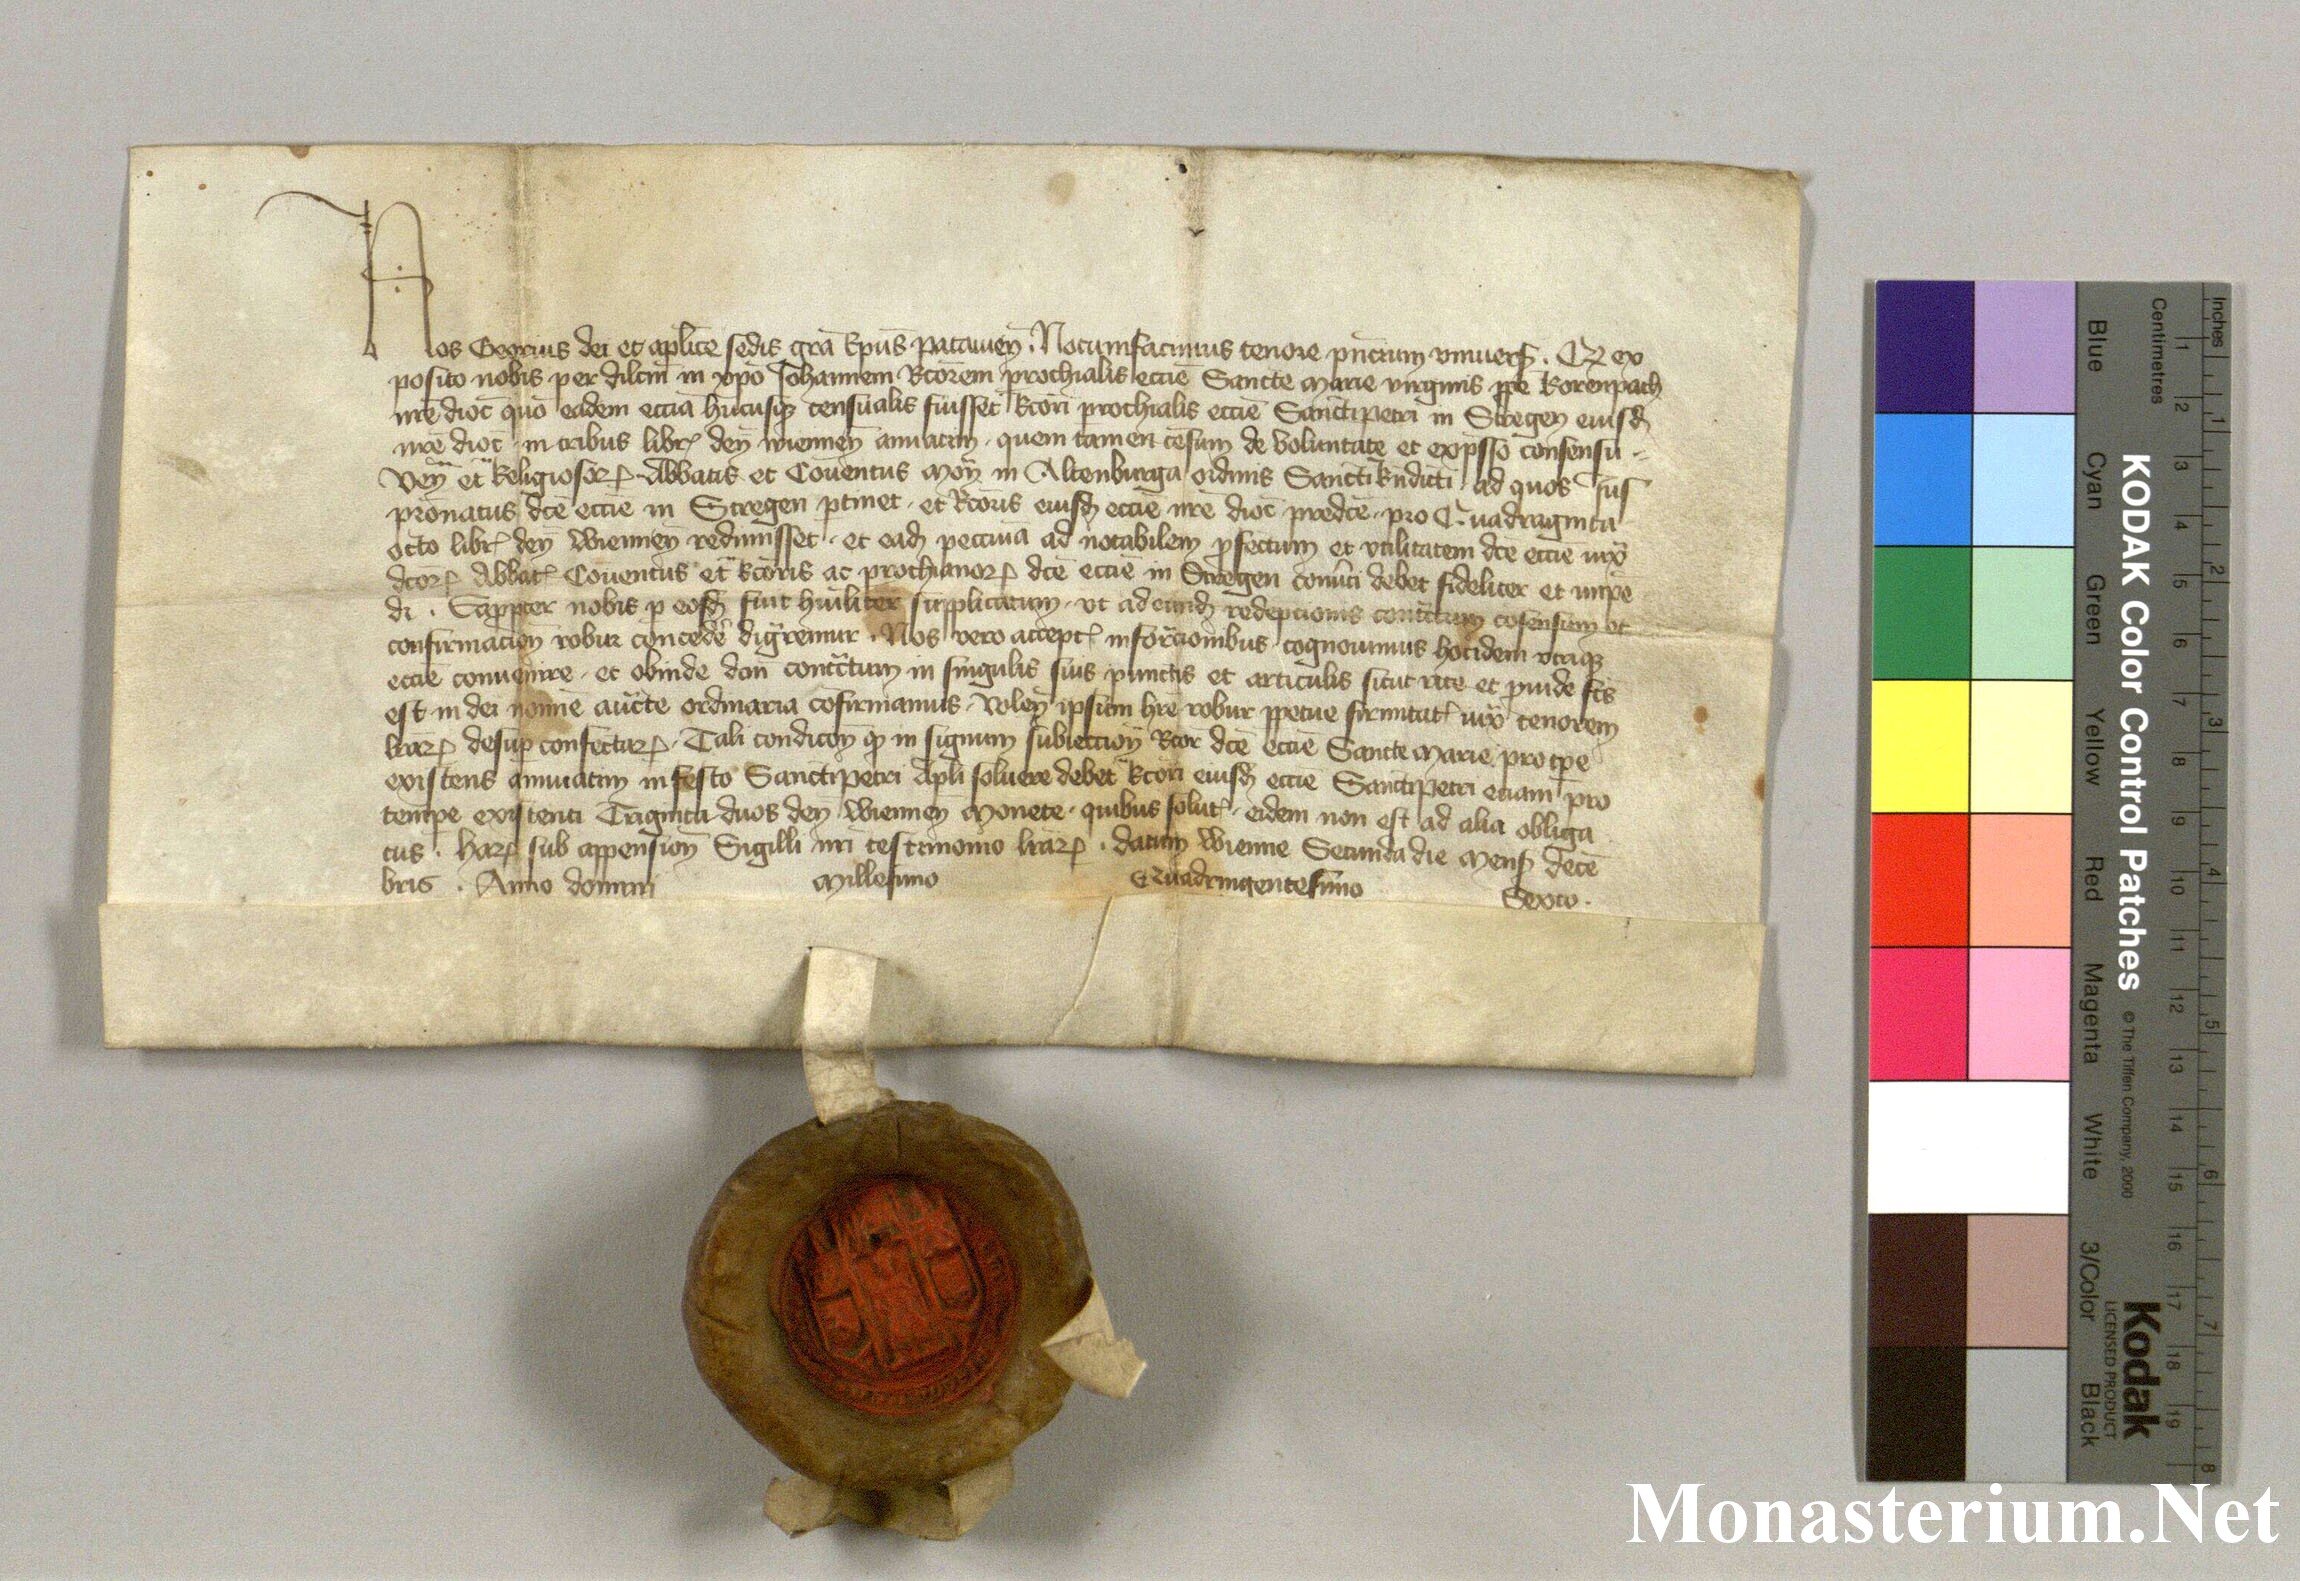 Nos Georius dei et aplice sedis gra Epus patauien. Notumfacimus tenore pncium vniuers. Q ex
posito nobis per dilcm in xpo Johannem Rcorem prochialis eccie Sancte marie virginis ppe korenpach
nre dioc quo eadem eccia hucusq censualis fuisset Rcori prochialis eccie Sanctipetri in Stregen eiusd
nre dioc in tribus libr den wiennen annuatim. quem tamen cesum de voluntate et expsso consensu
Ven et Religiosor Abbatis et Couentus mon in Altenburga ordinis Sancti Bndicti. ad quos Jus
pronatus dce eccie in Stregen ptinet. et Rcoris eiusd eccie nre dioc predce. pro Quadraginta
octo libr den wiennen redimisset. et ead peccunia ad notabilem pfectum et vtilitatem dce eccie iux
dcor Abbat Couentus et Rcoris ac prochianor dce eccie in Stregen conuti debet fideliter et impe
di. Sup pter nobis p eosd fuit huiliter supplicatum. vt ad eund redepcionis contctum cosensum et
confirmacion robur concede digremur. Nos vero accept informcionibus. cognouimus hocidem vtriq
eccie conuenire. et obinde dcm contctum in singulis suis punctis et articulis sicut rite et puide fcs
est in dei nomine aucte ordinaria cofirmamus. Volen ipsum hre robur ppetue firmitat iux tenorem
lrar desup confectar. Tali condicon q in signum subieccion Rcor dce eccie Sancte Marie pro tpe
existens annuatim in festo Sanctipetri Apli soluere debet Rcori eiusd eccie Sanctipetri eciam pro
tempe existenti Triginta duos den wiennen monete. quibus solut. eidem non est ad alia obliga
tus. Har sub appension Sigilli nri testimonio lrar. datum wienne Secunda die mens dece
bris. Anno domini Millesimo Quadringentesimo Sexto.
KODAK Color Control Patches
© The Tiffen Company, 2000
Kodak
LICENSED PRODUCT
Blue Cyan Green Yellow Red Magenta White 3/Color Black
Centimetres
1 2 3 4 5 6 7 8 9 10 11 12 13 14 15 16 17 18 19
Inches
1 2 3 4 5 6 7 8
Monasterium.Net